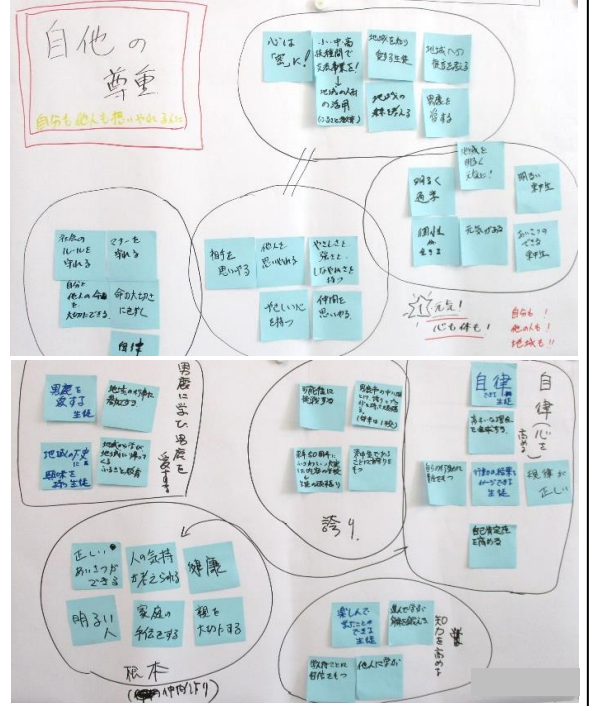 自他の
尊重
自分も他人も思いやれる人に
心は
「寛大」!
小・中・高
校種間で
交流事業を!
↓
地域の人材
の活用
地域を知り
愛する生徒
地域への
貢献を考える
地域の
未来を考える
男鹿を
愛する
地域を
明るく
元気に!
明るく
過ごす
明るい
東中生
個性
元気がある
あいさつの
できる
東中生
元気!
心も体も!
自分も!
他の人も!
地域も!!
社会の
ルールを
守れる
マナーを
守れる
自分と
他人の命を
大切にできる
命の大切さ
に気づく
自律
相手を
思いやる
他人を
思いやれる
やさしさと
強さと
しなやかさを
持つ
やさしい心
を持つ
仲間を
思いやる
男鹿に学び男鹿を
愛する
男鹿を
愛する
生徒
地域の行事に
参加する
地域の歴史
に
興味を
持つ生徒
ふるさと教育
可能性に
挑戦する
誇り
自律(心を
高める)
自律
できる
生徒
高らかな理想
を追求する
自分の行動に
責任をもつ
行動の結果を
イメージできる
生徒
規律が
正しい
自己肯定感
を高める
正しい
あいさつが
できる
人の気持
が考えられる
健康
明るい
人
家庭の
手伝をする
親を
大切にする
根本
楽しんで
学ぶことの
できる
生徒
進んで学ぶ
知力を高める
自信をもつ
他人に学ぶ